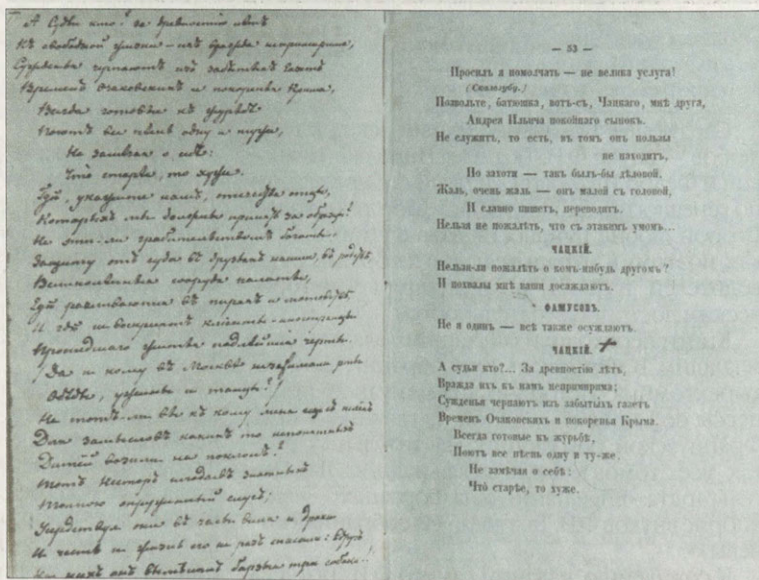 А Судьи кто? за древностію лѣтъ
Къ свободной жизни — ихъ вражда непримирима,
Сужденья черпаютъ изъ забытыхъ Газетъ
Временъ Очаковскихъ и покоренья Крыма,
Всегда готовые къ журьбѣ
Поютъ все пѣснь одну и туже,
Не замѣчая о себѣ:
Что старѣе, то хуже.
Гдѣ, укажите намъ, отечества отцы,
Которыхъ мы должны принять за образцы?
Не эти-ли грабительствомъ богаты
Защиту отъ суда въ друзьяхъ нашли, въ родствѣ,
Великолѣпныя соорудя палаты,
Гдѣ разливаются въ пирахъ и мотовствѣ,
И гдѣ не воскресятъ кліенты-иностранцы
Прошедшаго житья подлѣйшія черты.
Да и кому въ Москвѣ не зажимали рты
Обѣды, ужины и танцы?
Не тотъ-ли вы къ кому меня еще съ
Для замысловъ какихъ то непонятныхъ
Дѣтей возили на поклонъ?
Тотъ Несторъ негодяевъ знатныхъ
Толпою окруженный слугъ;
Усердствуя они въ часы вина и драки
И честь и жизнь его не разъ спасали: вдругъ
На нихъ онъ вымѣнялъ борзыя три собаки..!
— 53 —
Просилъ я помолчать — не велика услуга!
(Скалозубу.)
Позвольте, батюшка, вотъ-съ, Чацкаго, мнѣ друга,
Андрея Ильича покойнаго сынокъ.
Не служитъ, то есть, въ томъ онъ пользы
не находитъ,
Но захоти — такъ былъ-бы дѣловой.
Жаль, очень жаль — онъ малой съ головой,
И славно пишетъ, переводитъ.
Нельзя не пожалѣть, что съ этакимъ умомъ...
ЧАЦКІЙ.
Нельзя-ли пожалѣть о комъ-нибудь другомъ?
И похвалы мнѣ ваши досаждаютъ.
ФАМУСОВЪ.
Не я одинъ — всѣ также осуждаютъ.
ЧАЦКІЙ.
А судьи кто?... За древностію лѣтъ,
Вражда ихъ къ намъ непримирима;
Сужденья черпаютъ изъ забытыхъ газетъ
Временъ Очаковскихъ и покоренья Крыма.
Всегда готовые къ журьбѣ,
Поютъ все пѣснь одну и ту-же,
Не замѣчая о себѣ:
Что́ старѣе, то хуже.